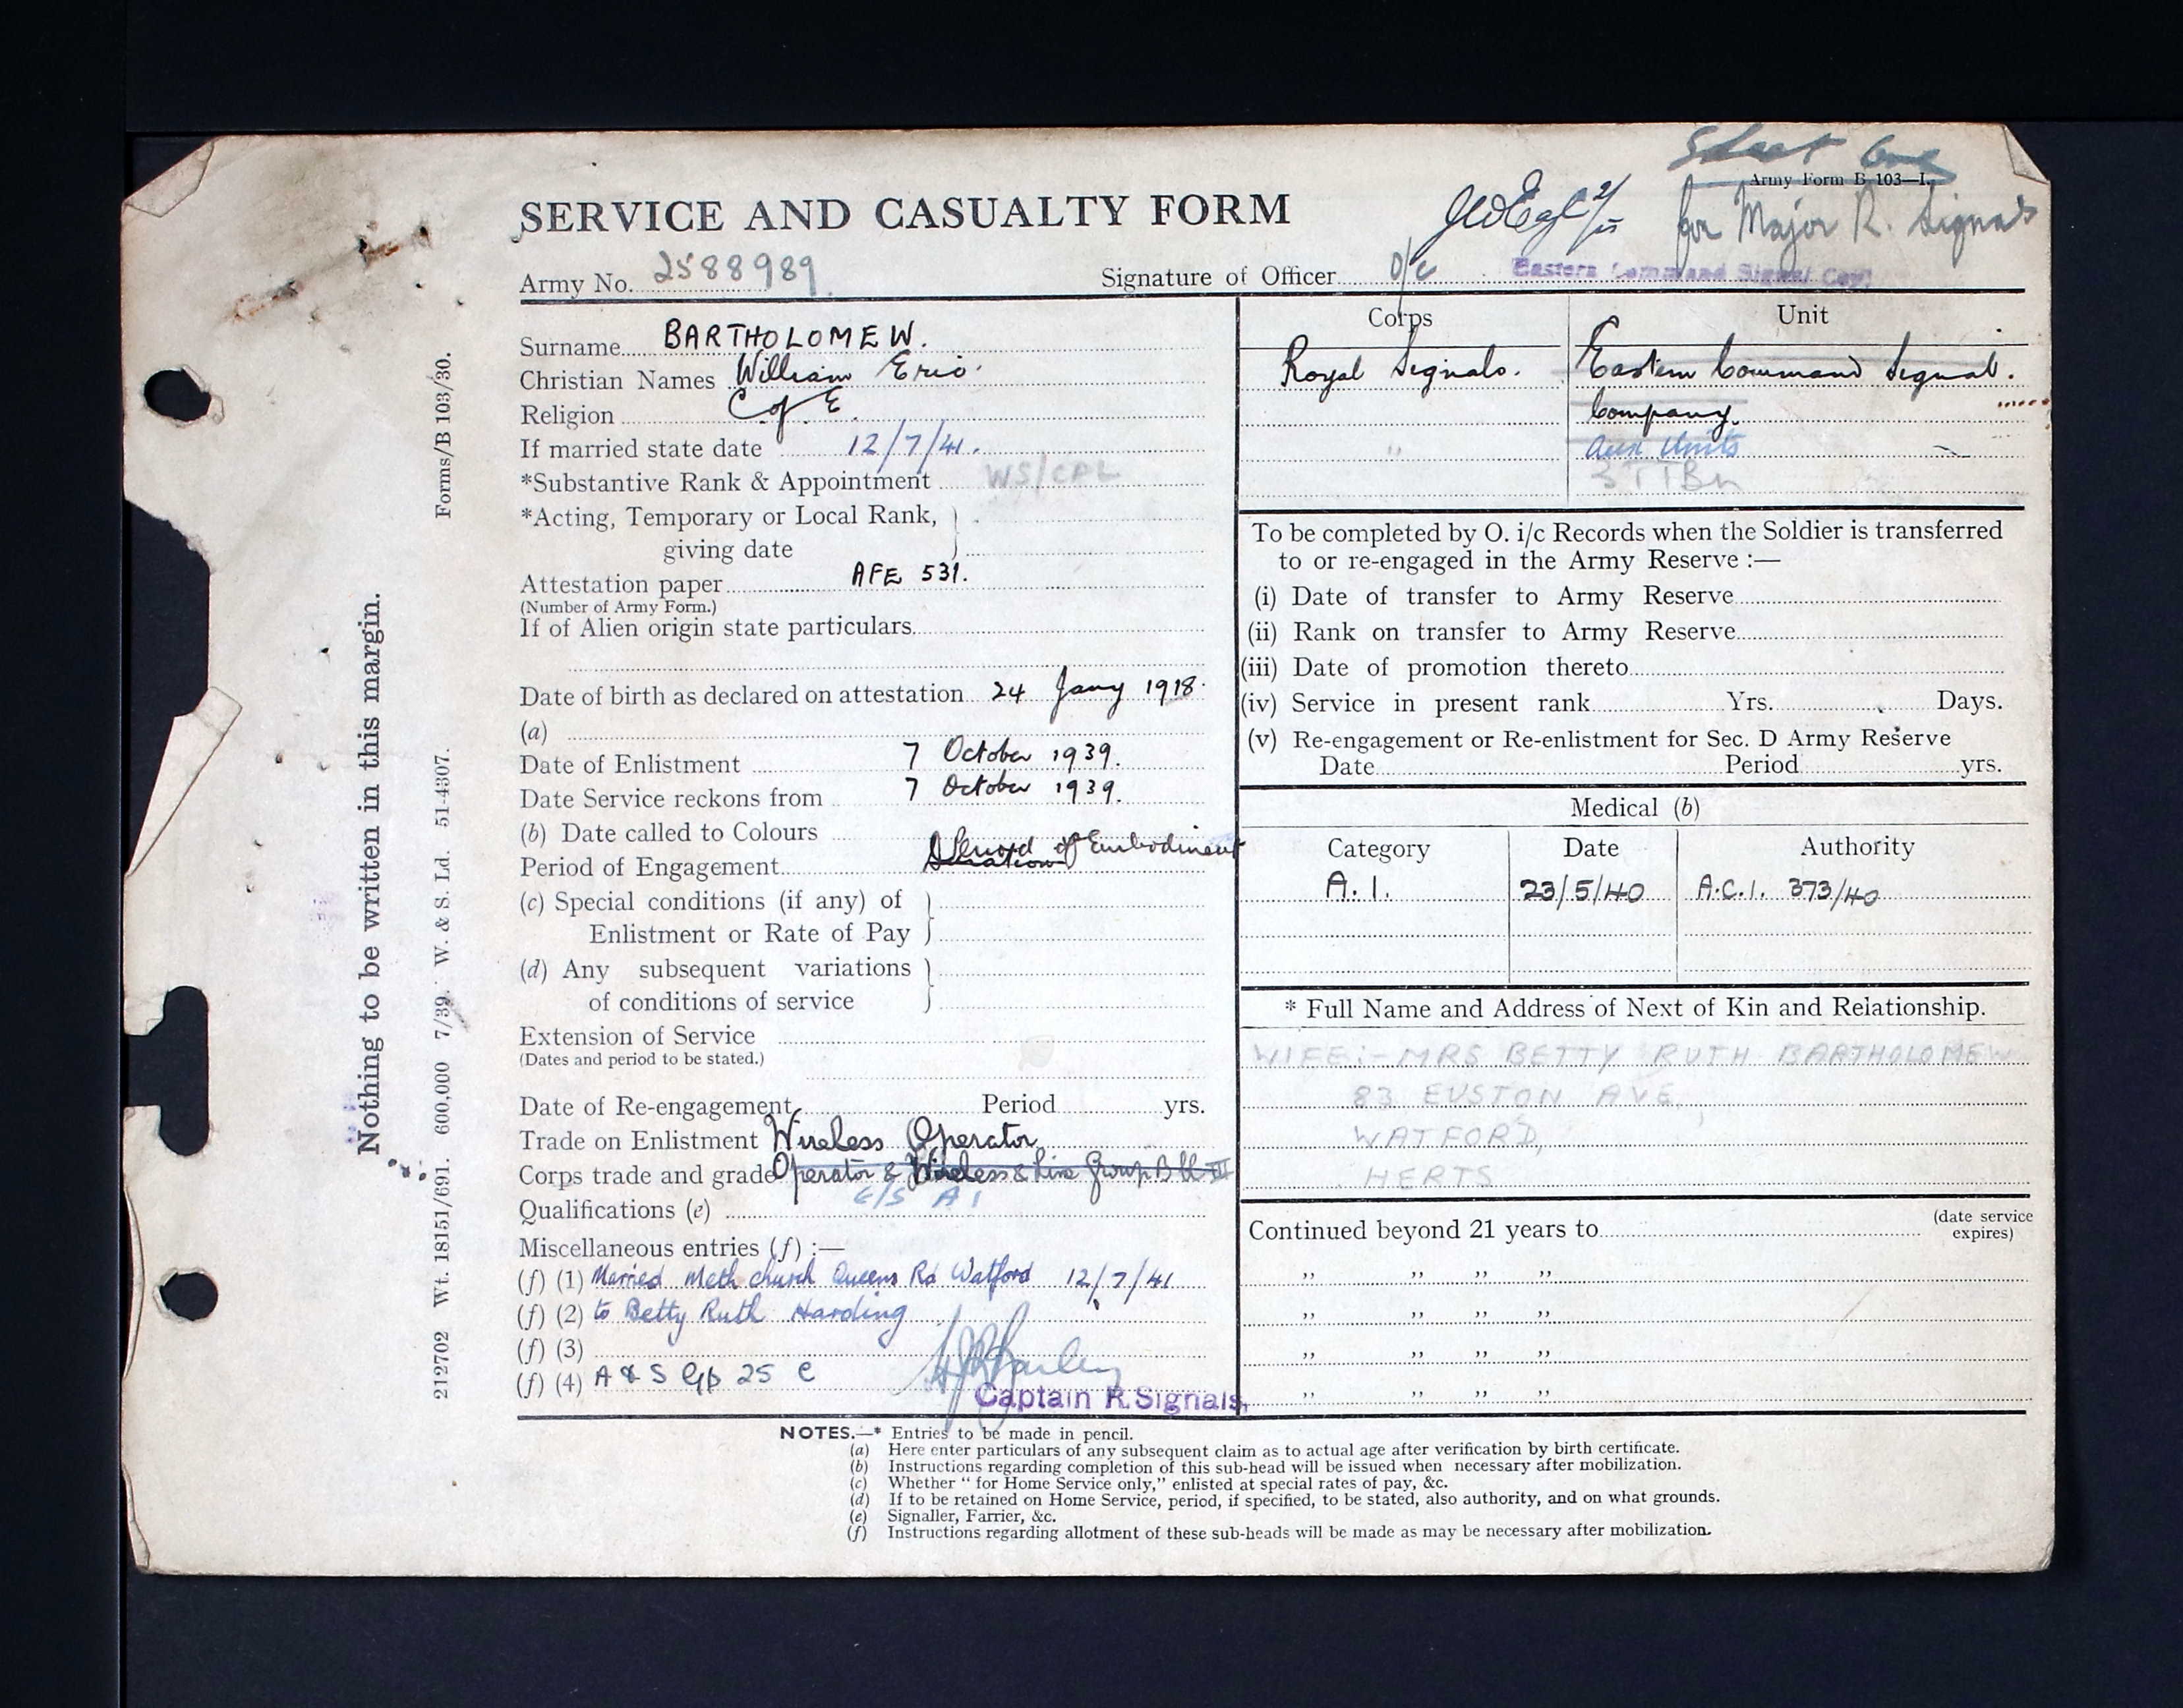 Sheet One
Army Form B 103—I.
SERVICE AND CASUALTY FORM
for Major R. Signals
Army No. 2588989
Signature of Officer O/C Eastern Command Signal Coy.
Surname BARTHOLOMEW.
Christian Names William Eric.
Religion C of E.
If married state date 12/7/41.
*Substantive Rank & Appointment WS/CPL
*Acting, Temporary or Local Rank,
giving date
Attestation paper AFE 531.
(Number of Army Form.)
If of Alien origin state particulars
Date of birth as declared on attestation 24 Jany 1918.
(a)
Date of Enlistment 7 October 1939.
Date Service reckons from 7 October 1939.
(b) Date called to Colours
Period of Engagement of Embodiment
(c) Special conditions (if any) of
Enlistment or Rate of Pay
(d) Any subsequent variations
of conditions of service
Extension of Service
(Dates and period to be stated.)
Date of Re-engagement Period yrs.
Trade on Enlistment Wireless Operator
Corps trade and grade Operator & Wireless & Line Group B
Qualifications (e)
Miscellaneous entries (f) :—
(f) (1) Married Meth church Queens Rd Watford 12/7/41
(f) (2) to Betty Ruth Harding
(f) (3)
(f) (4) A & S Gp 25 C
Captain R. Signals.
Corps Unit
Royal Signals. Eastern Command Signal.
Company.
" Aux Units
3TTBn
To be completed by O. i/c Records when the Soldier is transferred
to or re-engaged in the Army Reserve :—
(i) Date of transfer to Army Reserve
(ii) Rank on transfer to Army Reserve
(iii) Date of promotion thereto
(iv) Service in present rank Yrs. Days.
(v) Re-engagement or Re-enlistment for Sec. D Army Reserve
Date Period yrs.
Medical (b)
Category Date Authority
A.1. 23/5/40 A.C.I. 373/40
* Full Name and Address of Next of Kin and Relationship.
WIFE:- MRS BETTY RUTH BARTHOLOMEW
83 EUSTON AVE,
WATFORD,
HERTS
Continued beyond 21 years to (date service
expires)
" " " "
" " " "
" " " "
" " " "
NOTES.—* Entries to be made in pencil.
(a) Here enter particulars of any subsequent claim as to actual age after verification by birth certificate.
(b) Instructions regarding completion of this sub-head will be issued when necessary after mobilization.
(c) Whether "for Home Service only," enlisted at special rates of pay, &c.
(d) If to be retained on Home Service, period, if specified, to be stated, also authority, and on what grounds.
(e) Signaller, Farrier, &c.
(f) Instructions regarding allotment of these sub-heads will be made as may be necessary after mobilization.
Nothing to be written in this margin.
212702 Wt. 18151/691. 600,000 7/39. W. & S. Ld. 51-4307. Forms/B 103/30.